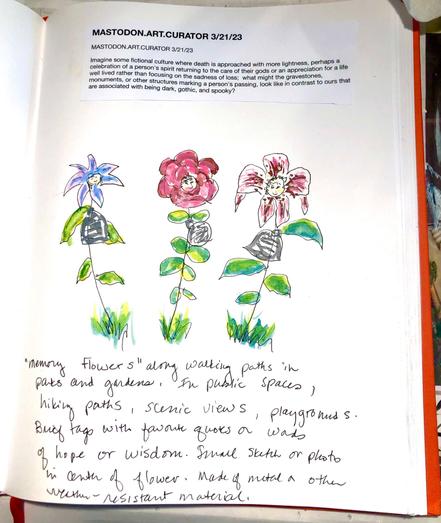 MASTODON.ART.CURATOR 3/21/23
MASTODON.ART.CURATOR 3/21/23
Imagine some fictional culture where death is approached with more lightness, perhaps a
celebration of a person's spirit returning to the care of their gods or an appreciation for a life
well lived rather than focusing on the sadness of loss; what might the gravestones,
monuments, or other structures marking a person's passing, look like in contrast to ours that
are associated with being dark, gothic, and spooky?
"Memory Flowers" along walking paths in
parks and gardens. In public spaces,
hiking paths, scenic views, playgrounds.
Brief tags with favorite quotes or words
of hope or wisdom. Small sketch or photo
in center of flower. Made of metal or other
weather-resistant material.